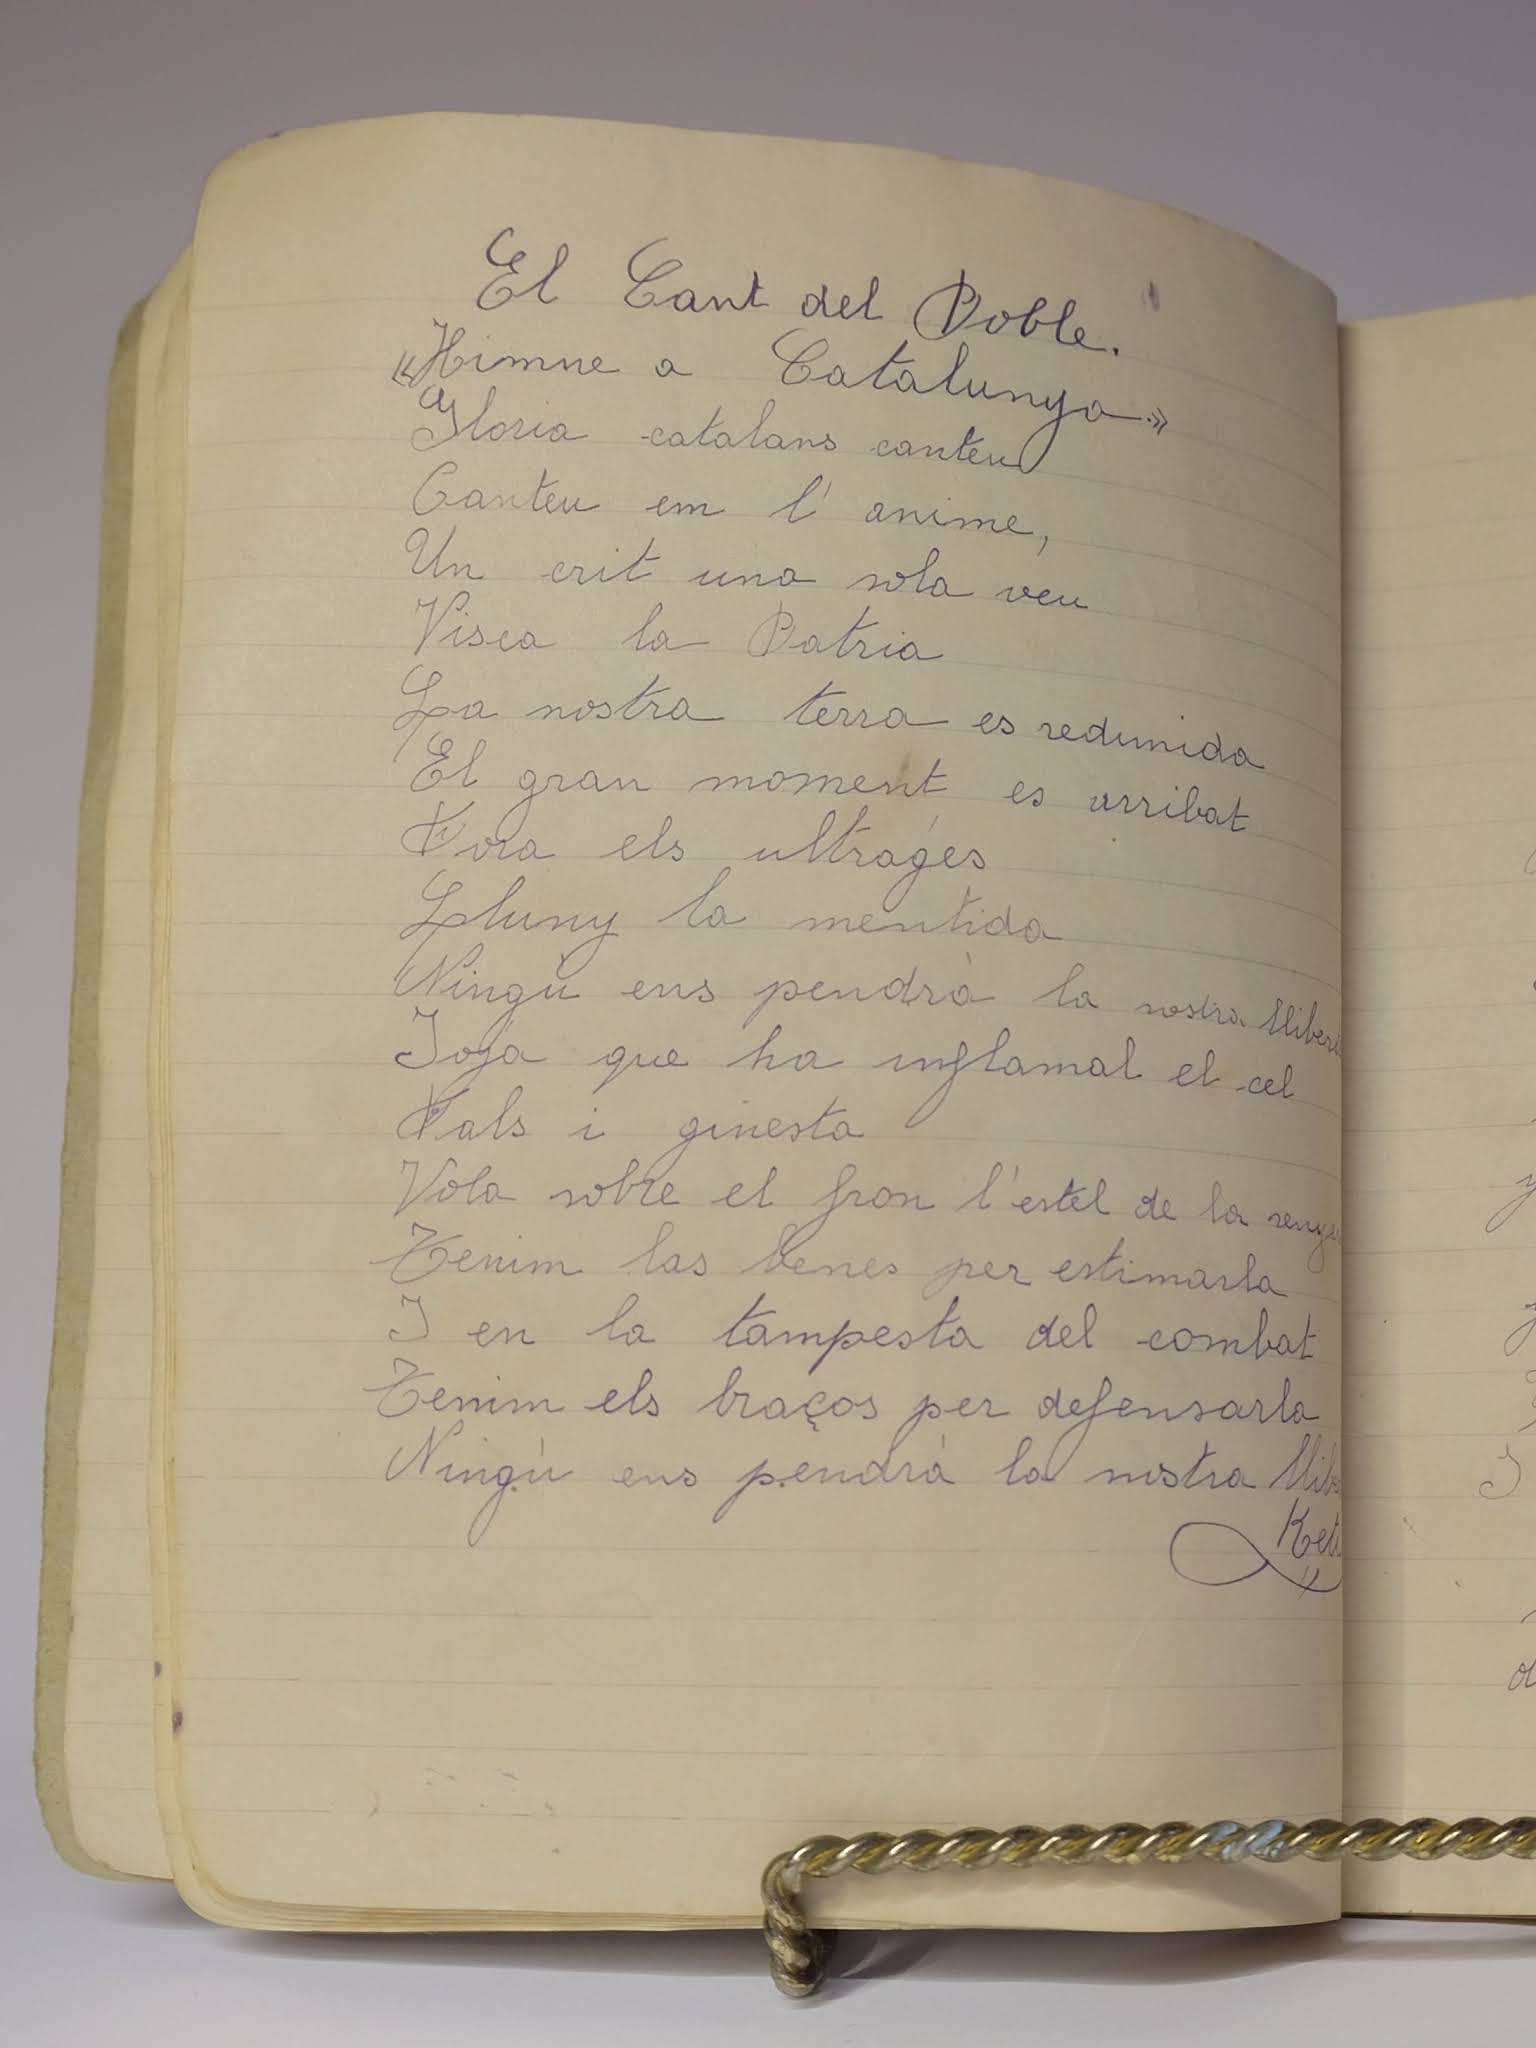 El Cant del Poble.
«Himne a Catalunya»
Gloria catalans canteu
Canteu em l'anime,
Un crit una sola veu
Visca la Patria
La nostra terra es redimida
El gran moment es arribat
Fora els ultrages
Lluny la mentida
Ningú ens pendrà la nostra
Joja que ha inflamat el cel
Fals i ginesta
Vola sobre el fron l'estel de la
Tenim las benes per estimarla
I en la tampesta del combat
Tenim els braços per defensarla
Ningù ens pendrà la nostra